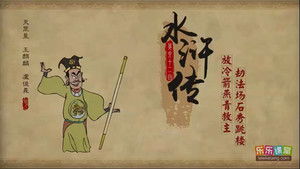 水浒传
第六十二回
放冷箭燕青救主
劫法场石秀跳楼
天罡星 玉麒麟 卢俊义
乐乐课堂
leleketang.com